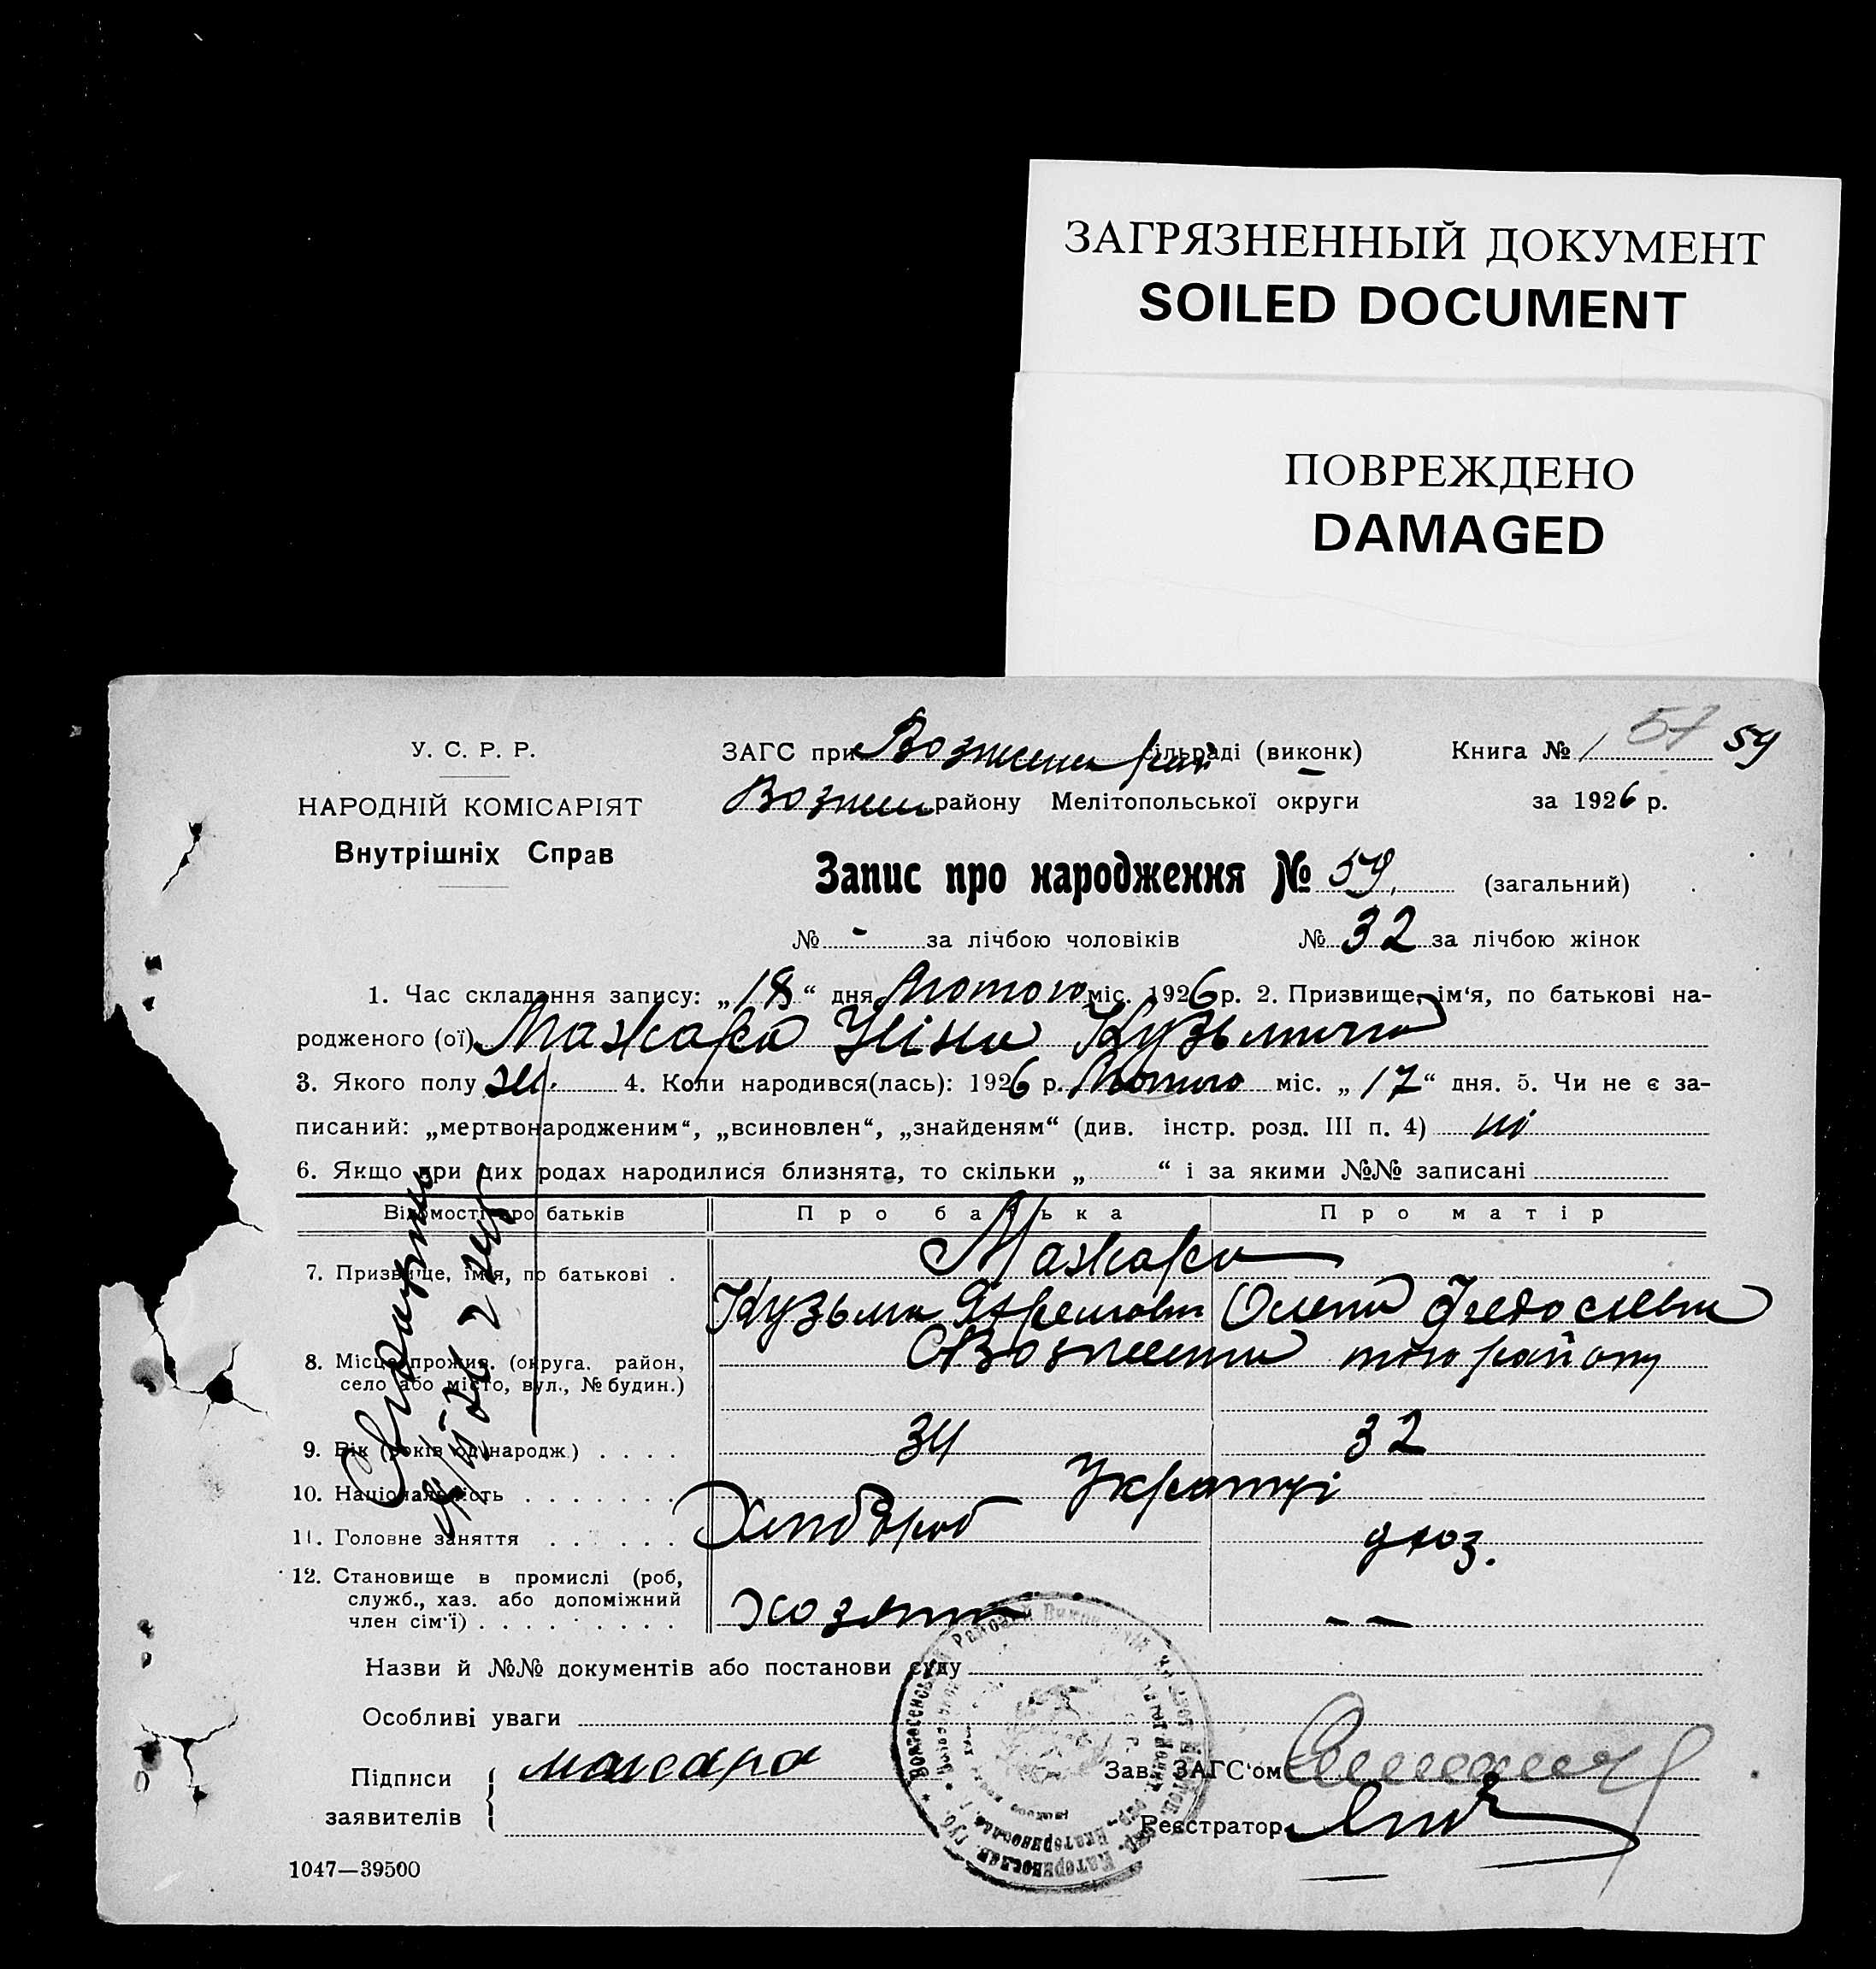 ЗАГРЯЗНЕННЫЙ ДОКУМЕНТ
SOILED DOCUMENT
ПОВРЕЖДЕНО
DAMAGED
У. С. Р. Р.
НАРОДНІЙ КОМІСАРІЯТ
Внутрішніх Справ
ЗАГС при сільраді (виконк)
Книга № 1 57 59
району Мелітопольської округи
за 1926 р.
Запис про народження № 59. (загальний)
№ - за лічбою чоловіків № 32 за лічбою жінок
1. Час складання запису: „18“ дня Лютого міс. 1926 р. 2. Призвище, ім‘я, по батькові на-
родженого (ої) Мажара Ніна Кузьмична
3. Якого полу ж. 4. Коли народився(лась): 1926 р. Лютого міс. „17“ дня. 5. Чи не є за-
писаний: „мертвонародженим“, „всиновлен“, „знайденям“ (див. інстр. розд. III п. 4) ні
6. Якщо при цих родах народилися близнята, то скільки „ “ і за якими №№ записані
Відомості про батьків Про батька Про матір
7. Призвище, ім‘я, по батькові . Мажара
Кузьма Олена Федосіевна
8. Місце прожив. (округа. район,
село або місто, вул., № будин.)
9. Вік (років од народж.) . . . . 34 32
10. Національність . . . . . . .
11. Головне заняття . . . . . . Хлібороб
12. Становище в промислі (роб,
служб., хаз. або допоміжний
член сім‘ї) . . . . . . . . . Хозяин — —
Назви й №№ документів або постанови суду
Особливі уваги
Підписи
заявителів
мажара
Зав. ЗАГС‘ом
Реєстратор
1047—39500